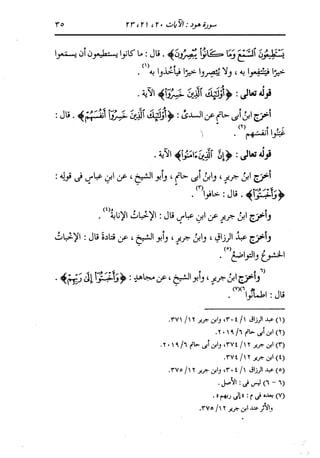 سورة هود : الآيات ٢٠، ٢١، ٢٣
٣٥
يَسْتَطِيعُونَ السَّمْعَ وَمَا كَانُوا يُبْصِرُونَ﴾ . قال : ما كانوا يستطيعون أن يسمعوا
خيرًا فينتفعوا به ، ولا يُبصروا خيرًا فيأخذوا به(١) .
قولُه تعالى : ﴿أُوْلَٰئِكَ الَّذِينَ خَسِرُوٓا﴾ الآية .
أخرج ابنُ أبى حاتمٍ عن السدىِّ : ﴿أُوْلَٰئِكَ الَّذِينَ خَسِرُوٓا أَنفُسَهُمْ﴾ . قال :
غَبَنوا أنفسَهم(٢) .
قولُه تعالى : ﴿إِنَّ الَّذِينَ ءَامَنُوا﴾ الآية .
أخرج ابنُ جريرٍ ، وابنُ أبى حاتمٍ ، وأبو الشيخِ ، عن ابنِ عباسٍ فى قولِه :
﴿وَأَخْبَتُوٓا﴾ . قال : خافوا(٣) .
وأخرج ابنُ جريرٍ عن ابنِ عباسٍ قال : الإخباتُ الإنابةُ(٤) .
وأخرج عبدُ الرزاقِ ، وابنُ جريرٍ ، وأبو الشيخِ ، عن قتادةَ قال : الإخباتُ
الخشوعُ والتواضعُ(٥) .
(٦)وأخرج ابنُ جريرٍ ، وأبو الشيخِ ، عن مجاهدٍ : ﴿وَأَخْبَتُوٓا إِلَىٰ رَبِّهِمْ﴾ .
قال : اطمأنُّوا(٧)(٦) .
(١) عبد الرزاق ١/ ٣٠٤، وابن جرير ١٢/ ٣٧١.
(٢) ابن أبى حاتم ٦/ ٢٠١٩.
(٣) ابن جرير ١٢/ ٣٧٤، وابن أبى حاتم ٦/ ٢٠١٩.
(٤) ابن جرير ١٢/ ٣٧٤.
(٥) عبد الرزاق ١/ ٣٠٤، وابن جرير ١٢/ ٣٧٥.
(٦ - ٦) ليس فى : الأصل .
(٧) بعده فى م : «إلى ربهم» .
والأثر عند ابن جرير ١٢/ ٣٧٥.